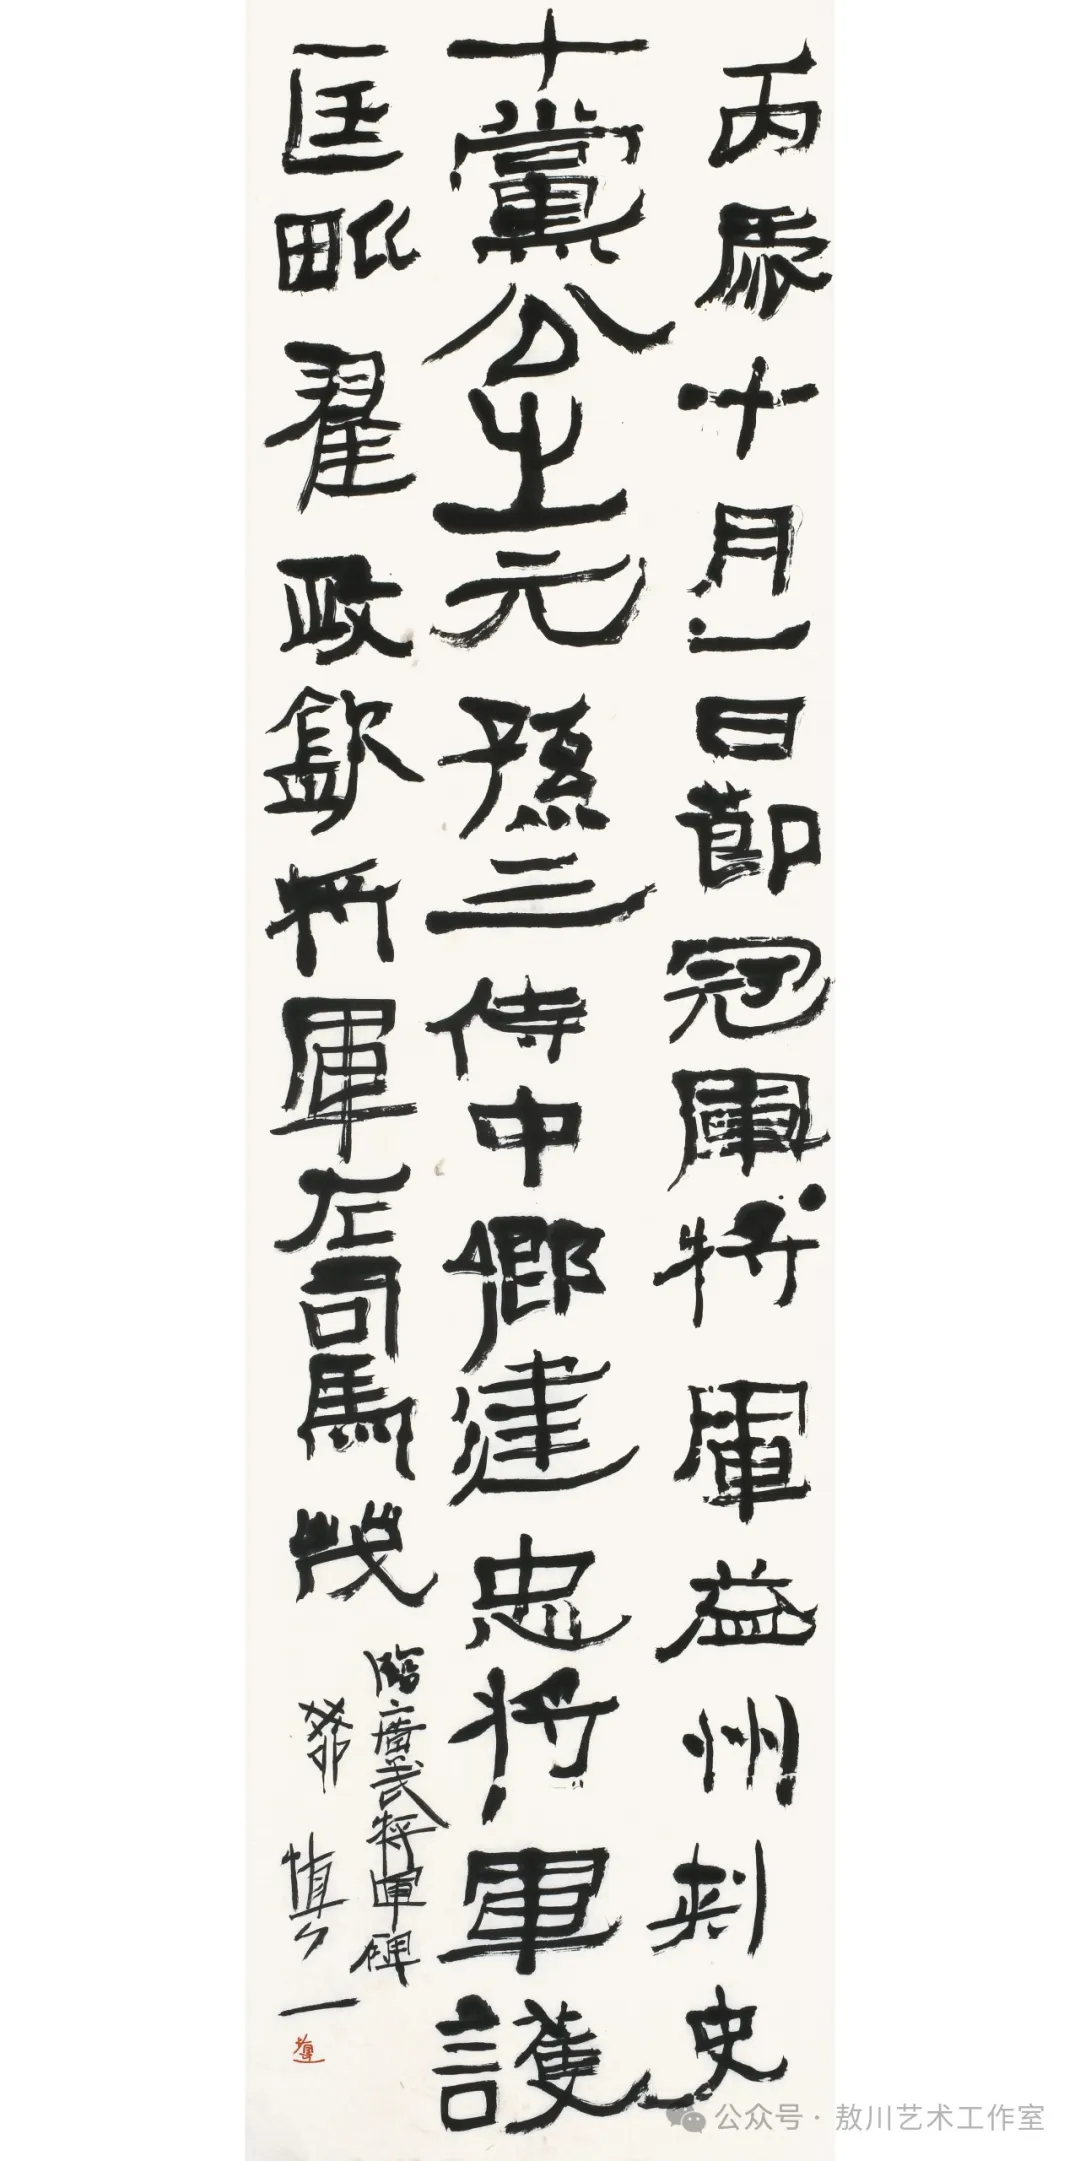 丙辰十月一日節冠軍將軍益州刺史
上黨公之元孫三侍中卿建忠將軍護
匡毗翟政歙將軍左司馬
臨廣武將軍碑
癸卯
慎一
公众号·敖川艺术工作室